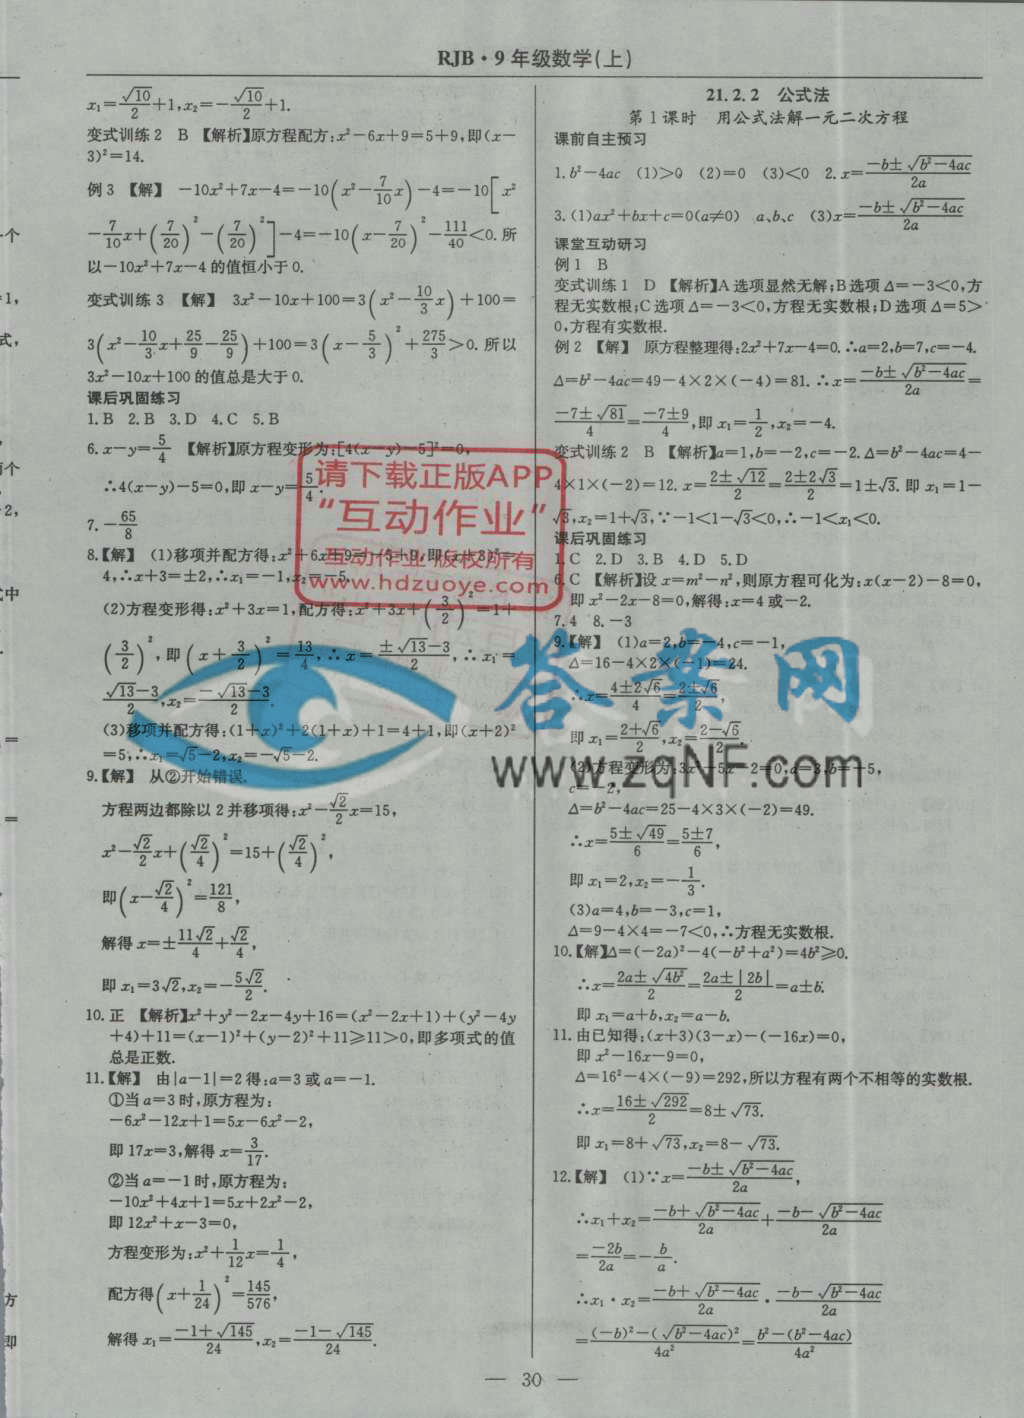 RJB·9年级数学(上)
x₁=√10/2+1,x₂=-√10/2+1.
变式训练2 B 【解析】原方程配方:x²-6x+9=5+9,即(x-
3)²=14.
例3 【解】 -10x²+7x-4=-10(x²-7/10x)-4=-10[x²
-7/10x+(7/20)²-(7/20)²]-4=-10(x-7/20)²-111/40<0.所
以-10x²+7x-4的值恒小于0.
变式训练3 【解】 3x²-10x+100=3(x²-10/3x)+100=
3(x²-10/3x+25/9-25/9)+100=3(x-5/3)²+275/3>0.所以
3x²-10x+100的值总是大于0.
课后巩固练习
1.B 2.B 3.D 4.C 5.B
6.x-y=5/4 【解析】原方程变形为:[4(x-y)-5]²=0,
∴4(x-y)-5=0,即x-y=5/4.
7.-65/8
8.【解】 (1)移项并配方得:x²+6x+9=-5+9,即(x+3)²=
4,∴x+3=±2,∴x₁=-1,x₂=-5.
(2)方程变形得:x²+3x=1,配方得:x²+3x+(3/2)²=1+
(3/2)²,即(x+3/2)²=13/4,∴x=±√13-3/2,∴x₁=
√13-3/2,x₂=-√13-3/2.
(3)移项并配方得:(1+x)²+2(1+x)+1=4+1,即(x+2)²
=5,∴x₁=√5-2,x₂=-√5-2.
9.【解】 从②开始错误.
方程两边都除以2并移项得:x²-√2/2x=15,
x²-√2/2x+(√2/4)²=15+(√2/4)²,
即(x-√2/4)²=121/8,
解得x=±11√2/4+√2/4,
即x₁=3√2,x₂=-5√2/2.
10.正 【解析】x²+y²-2x-4y+16=(x²-2x+1)+(y²-4y
+4)+11=(x-1)²+(y-2)²+11≥11>0,即多项式的值
总是正数.
11.【解】 由|a-1|=2得:a=3或a=-1.
①当a=3时,原方程为:
-6x²-12x+1=5x-6x²-2,
即17x=3,解得x=3/17.
②当a=-1时,原方程为:
-10x²+4x+1=5x+2x²-2,
即12x²+x-3=0,
方程变形为:x²+1/12x=1/4,
配方得(x+1/24)²=145/576,
解得x₁=-1+√145/24,x₂=-1-√145/24.
21.2.2 公式法
第1课时 用公式法解一元二次方程
课前自主预习
1.b²-4ac (1)>0 (2)=0 (3)<0 2.x=-b±√b²-4ac/2a
3.(1)ax²+bx+c=0(a≠0) a、b、c (3)x=-b±√b²-4ac/2a
课堂互动研习
例1 B
变式训练1 D 【解析】A选项显然无解;B选项Δ=-3<0,方
程无实数根;C选项Δ=-3<0,方程无实数根;D选项Δ=5>
0,方程有实数根.
例2 【解】 原方程整理得:2x²+7x-4=0.∴a=2,b=7,c=-4.
Δ=b²-4ac=49-4×2×(-4)=81.∴x=-b±√b²-4ac/2a=
-7±√81/4=-7±9/4,即x₁=1/2,x₂=-4.
变式训练2 B 【解析】a=1,b=-2,c=-2.Δ=b²-4ac=4-
4×1×(-2)=12.x=2±√12/2=2±2√3/2=1±√3.即x₁=1-
√3,x₂=1+√3,∵-1<1-√3<0,∴-1<x₁<0.
课后巩固练习
1.C 2.D 3.B 4.D 5.D
6.C 【解析】设x=m²-n²,则原方程可化为:x(x-2)-8=0,
即x²-2x-8=0,解得:x=4或-2.
7.4 8.-3
9.【解】 (1)a=2,b=-4,c=-1,
Δ=16-4×2×(-1)=24.
∴x=4±2√6/4=2±√6/2,
即x₁=2+√6/2,x₂=2-√6/2.
(2)方程变形为:3x²-5x-2=0,a=3,b=-5,
c=-2,
Δ=b²-4ac=25-4×3×(-2)=49.
∴x=5±√49/6=5±7/6,
即x₁=2,x₂=-1/3.
(3)a=4,b=-3,c=1,
Δ=9-4×4=-7<0,∴方程无实数根.
10.【解】Δ=(-2a)²-4(-b²+a²)=4b²≥0.
∴x=2a±√4b²/2=2a±|2b|/2=a±b.
即x₁=a+b,x₂=a-b.
11.由已知得:(x+3)(3-x)-(-16x)=0,
即x²-16x-9=0,
Δ=16²-4×(-9)=292,所以方程有两个不相等的实数根.
∴x=16±√292/2=8±√73.
即x₁=8+√73,x₂=8-√73.
12.【解】 (1)∵x=-b±√b²-4ac/2a,
∴x₁+x₂=-b+√b²-4ac/2a+-b-√b²-4ac/2a
=-2b/2a=-b/a.
∴x₁·x₂=-b+√b²-4ac/2a·-b-√b²-4ac/2a
=(-b)²-(√b²-4ac)²/4a²=b²-(b²-4ac)/4a²
— 30 —
请下载正版APP
“互动作业”
互动作业 版权所有
www.hdzuoye.com
答案网
www.zqNF.com